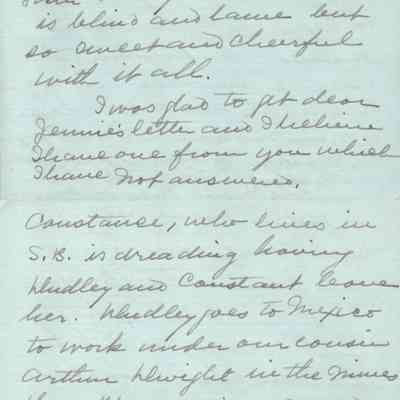 is blind and lame but
so sweet and cheerful
with it all.
I was glad to get dear
Jennie's letter and I believe
I have one from you which
I have not answered.
Constance, who lives in
S.B. is dreading having
Dudley and Constant leave
her. Dudley goes to Mexico
to work under our cousin
Arthur Dwight in the mines